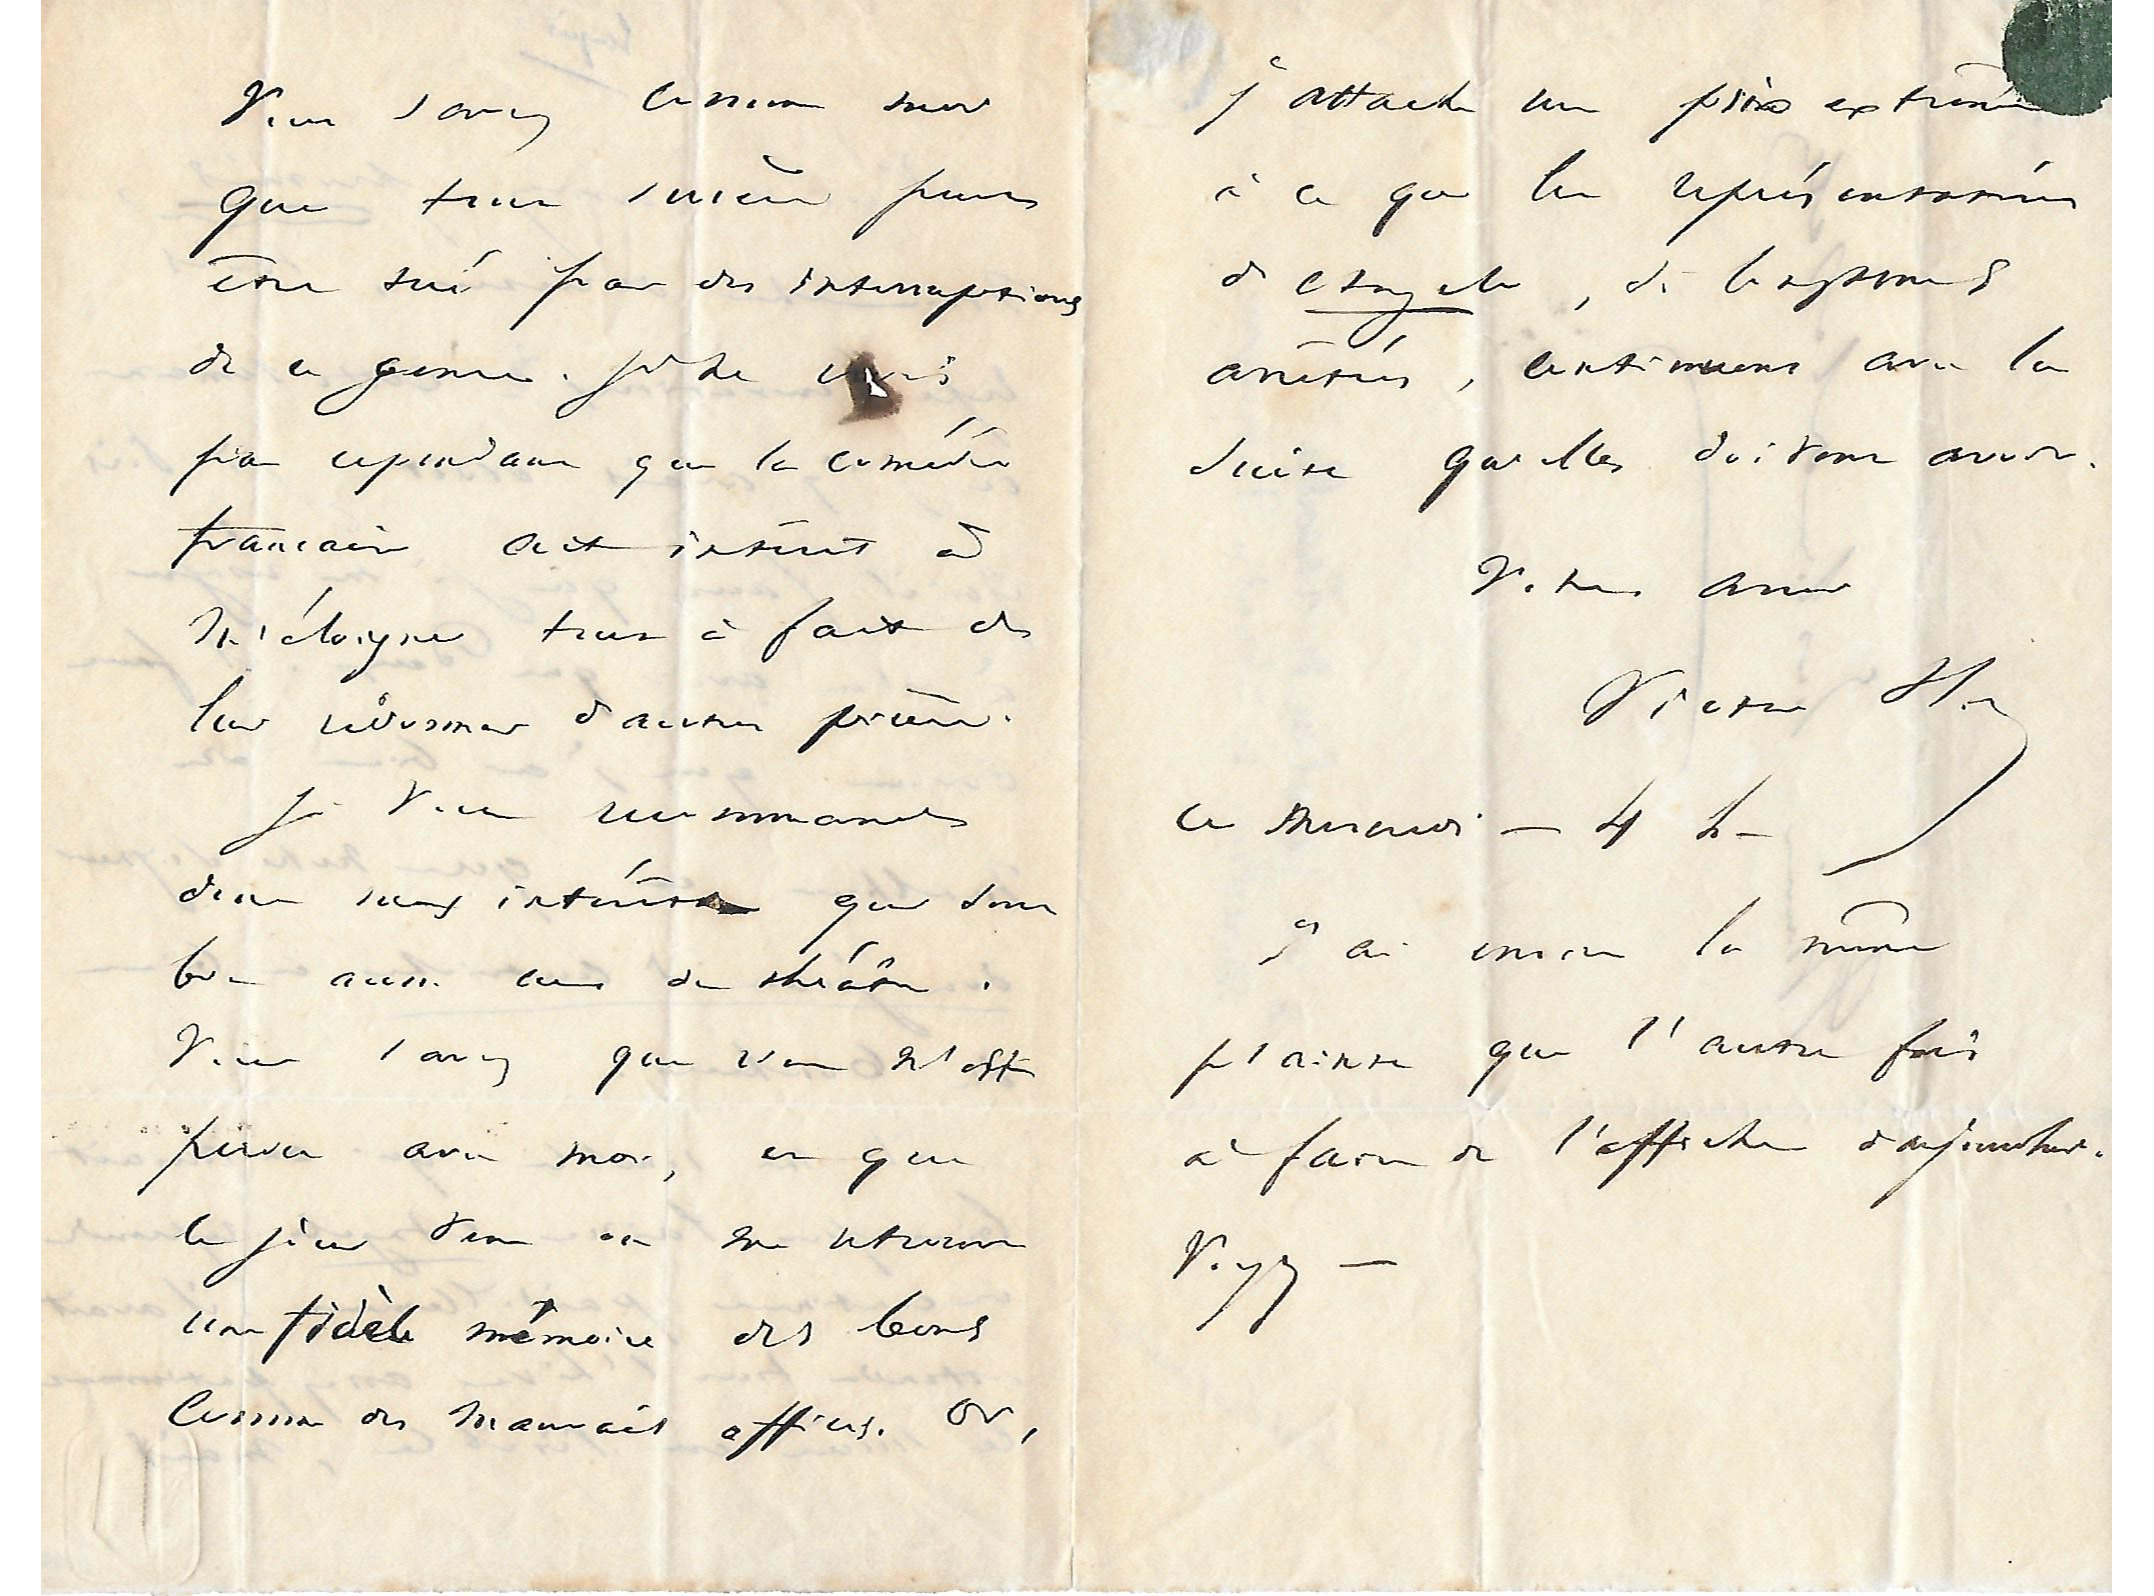 Vous savez comme moi
que tout succès peut
être tué par des interruptions
de ce genre. je ne crois
pas cependant que la comédie
française ait intérêt à
m'éloigner tout à fait de
leur redonner d'autres pièces.
je vous recommande
donc mes intérêts qui sont
bien aussi ceux du théâtre.
Vous savez que rien n'est
perdu avec moi, et que
le jour vient où on me retrouve
une fidèle mémoire des bons
comme des mauvais offices. Or,
j'attache un prix extrême
à ce que les représentations
d'Angelo, si longtemps
arrêtées, continuent avec la
suite qu'elles doivent avoir.
Votre ami
Victor H.
ce mercredi — 4 h —
J'ai encore la même
plainte que l'autre fois
à faire de l'affiche d'aujourd'hui.
Voyez —